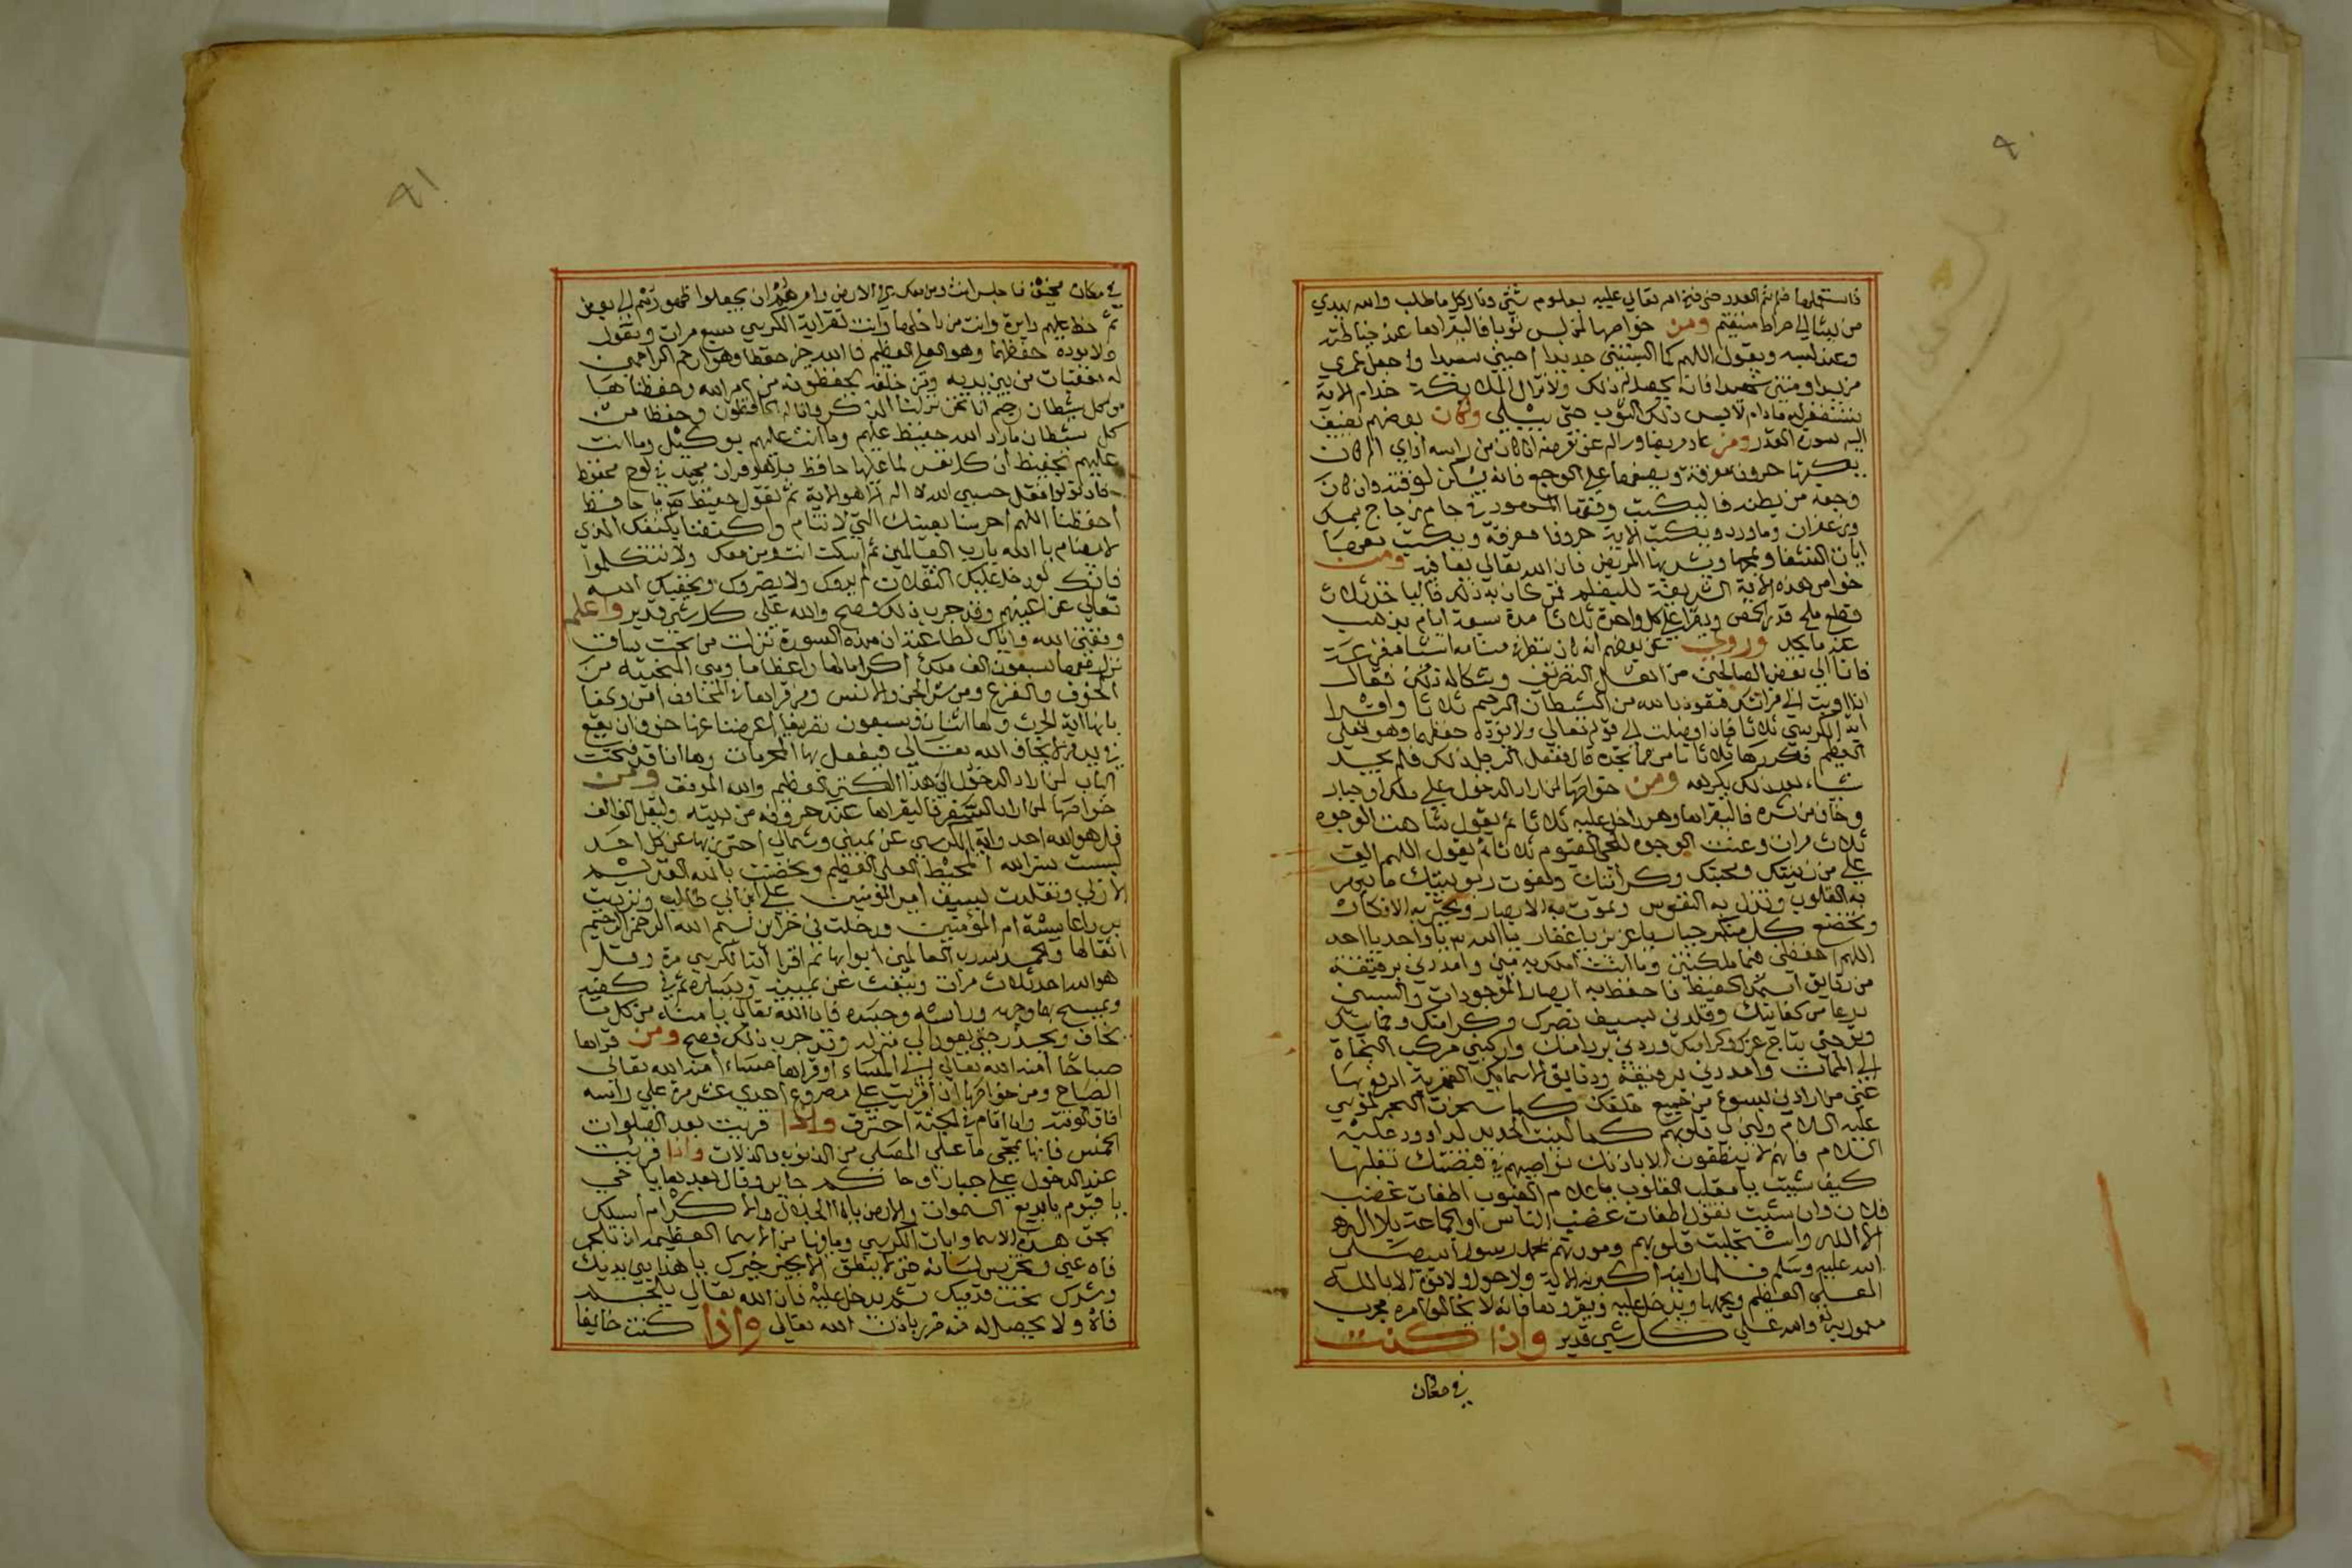 من يشا الي صراط مستقيم ومن خواصها لمن لبس ثوبا فاليقراها عند خياطته
وعند لبسه ويقول اللهم كما البستني جديدا احيني سعيدا واجعل عمري
مزيدا ومتني شهيدا فانه يحصل له ذلك ولا تزال الملايكة خدام الاية
يستغفرله مادام لابس ذلك الثوب حتي يبلي وكان بعضهم يضيف
اليه سورة القدر ومن
يكتبها حروف مفرقة ويضعها علي الوجع فانه يسكن لوقته وان كان
وجعه من بطنه فاليكتب وفقها في جام زجاج بمسك
وزعفران وماورد ويكتب الاية حروفا مفرقة ويكتب بعدها
ايات الشفا ويمحها ويشربها المريض فان الله تعالي يعافيه ومن
خواص هذه الاية الشريفة
قطع ملح قدر الحمص ويقرا علي كل واحدة ثلاثا مدة سبعة ايام يذهب
عنه ما يجد وروي عن بعضهم انه كان
فاتا الي بعض الصالحين من اهل التصريف وشكا له ذلك فقال
اذا اويت الي فراشك فتعوذ بالله من الشيطان الرجيم ثلاثا واقرا
اية الكرسي ثلاثا فاذا وصلت الي قوله تعالي ولا يؤده حفظهما وهو العلي
العظيم فكررها ثلاثا قال ففعل الرجل ذلك فلم يجد
شياء بعد ذلك يكرهه ومن خواصها لمن اراد الدخول علي ملك او جبار
وخاف من شره فاليقراها وهو داخل عليه ثلاثا ثم يقول شاهت الوجوه
ثلاث مرات وعنت الوجوه للحي القيوم ثلاثا ثم يقول اللهم الق
علي من زينتك ومحبتك وكرامتك ونعوت ربوبيتك ما تبهر
به القلوب وتذل به النفوس وتموت به الابصار وتحير به الافكار
وتخضع كل متكبر جبار يا عزيز يا غفار يا الله يا واحد يا احد
اللهم احفظني فيما ملكتني وما انت املك به مني وامددني برقيقة
من رقايق اسمك الحفيظ فاحفظ به ابصار الموجودات والبسني
درعا من كفايتك وقلدني بسيف نصرك وكرامتك وحمايتك
وتوجني بتاج عزك وكرامتك وردني بردا منك واركبني مركب النجاة
الي الممات وامددني برقيقة ودقايق اسمايك القهرية ادفع بها
عني من ارادني بسوء من جميع خلقك كما سخرت البحر لموسي
عليه السلام ولين لي قلوبهم كما لينت الحديد لداوود عليه
السلام فانهم لا ينطقون الا باذنك نواصيهم في قبضتك تقلبها
كيف شيت يا مقلب القلوب يا علام الغيوب اطفات غضب
فلان وان شيت تقول اطفات غضب الناس او الجماعة بلا اله
الا الله واستجلبت قلوبهم ومودتهم بمحمد رسول الله صلي
الله عليه وسلم فلما راينه اكبرنه ولا حول ولا قوة الا بالله
العلي العظيم ويدخل عليه
والله علي كل شي قدير واذا كنت
في مكان
في مكان مخيف فاجلس انت ومن معك في الارض وامرهم ان يجعلوا ظهورهم الي بعض
ثم خط عليهم دايرة وانت من داخلها وانت تقرا اية الكرسي سبع مرات وتقول
ولا يوده حفظهما وهو العلي العظيم فا الله خير حفظا وهو ارحم الراحمين
له معقبات من بين يديه ومن خلفه يحفظونه من امر الله وحفظناها
من كل شيطان رجيم انا نحن نزلنا الذكر وانا له لحافظون وحفظا من
كل شيطان مارد الله حفيظ عليهم وما انت عليهم بوكيل وما انت
عليهم بحفيظ ان كل نفس لما عليها حافظ بل هو قران مجيد في لوح محفوظ
فان تولوا فقل حسبي الله لا اله الا هو الاية ثم تقول حفيظ يا حافظ
احفظنا اللهم احرسنا بعينك التي لا تنام واكنفنا بكنفك الذي
لا يضام يا الله يا رب العالمين ثم اسكت انت ومن معك ولا تتكلموا
فانك لو دخل عليك الثقلان لم يروك ولا يضروك ويخفيك الله
تعالي عن اعينهم وقد جرب ذلك فصح والله علي كل شي قدير واعلم
وفقني الله واياك لطاعته ان هذه السورة نزلت من تحت ساق
نزل معها سبعون الف ملك اكراما لها واعظاما وهي المنجيه من
الخوف والفزع ومن شر الجن والانس ومن قراها في المخاوف امن
بانها اية الحرث ولها اثنان وسبعون تصريفا اعرضنا عنها خوف ان يقع
في يد من لا يخاف الله تعالي فيفعل بها المحرمات وها انا قد فتحت
الباب لمن اراد الدخول الي هذا الكنز العظيم والله الموفق ومن
خواصها لمن اراد السفر فاليقراها عند خروجه من بيته
قل هو الله احد واية الكرسي عن يميني وشمالي احترز بها عن كل احد
لبست ستر الله المحيط العلي العظيم وتحصنت بالله القديم
الازلي وتقلدت بسيف امير المؤمنين علي ابن ابي طالب وتزديت
بردا عايشة ام المؤمنين ودخلت في خزاين بسم الله الرحمن الرحيم
اقفالها والحمد لله رب العالمين ابوابها ثم اقرا اية الكرسي مرة وقل
هو الله احد ثلاث مرات وتنفث عن يمينه ويساره ثم في كفيه
ويمسح بها وجهه وراسه وجسده فان الله تعالي يامنه من كل ما
يخاف ويحذر حتي يعود الي منزله وقد جرب ذلك فصح ومن قراها
صباحا امنه الله تعالي الي المساء او قراها مساء امنه الله تعالي
الصباح ومن خواصها اذا قريت علي مصروع احدي عشر مرة علي راسه
افاق لوقته وان اقام في الجثة احترق واذا قريت بعد الصلوات
الخمس فانها تمحي ما علي المصلي من الذنوب والزلات واذا قريت
عند الدخول علي جبار او حاكم جاير وقال بعدها يا حي
يا قيوم يا بديع السموات والارض يا ذا الجلال والاكرام اسلك
بحق هذه الاسما وايات الكرسي وما فيها من الاسما العظيمه ان تلجم
فاه عني وتخرس لسانه حتي لا ينطق الا بخير خيرك يا هذا بين يديك
وشرك تحت قدميك ثم يدخل عليه فان الله تعالي يلجم
فاه ولا يحصل له منه ضرر باذن الله تعالي واذا كنت خايفا